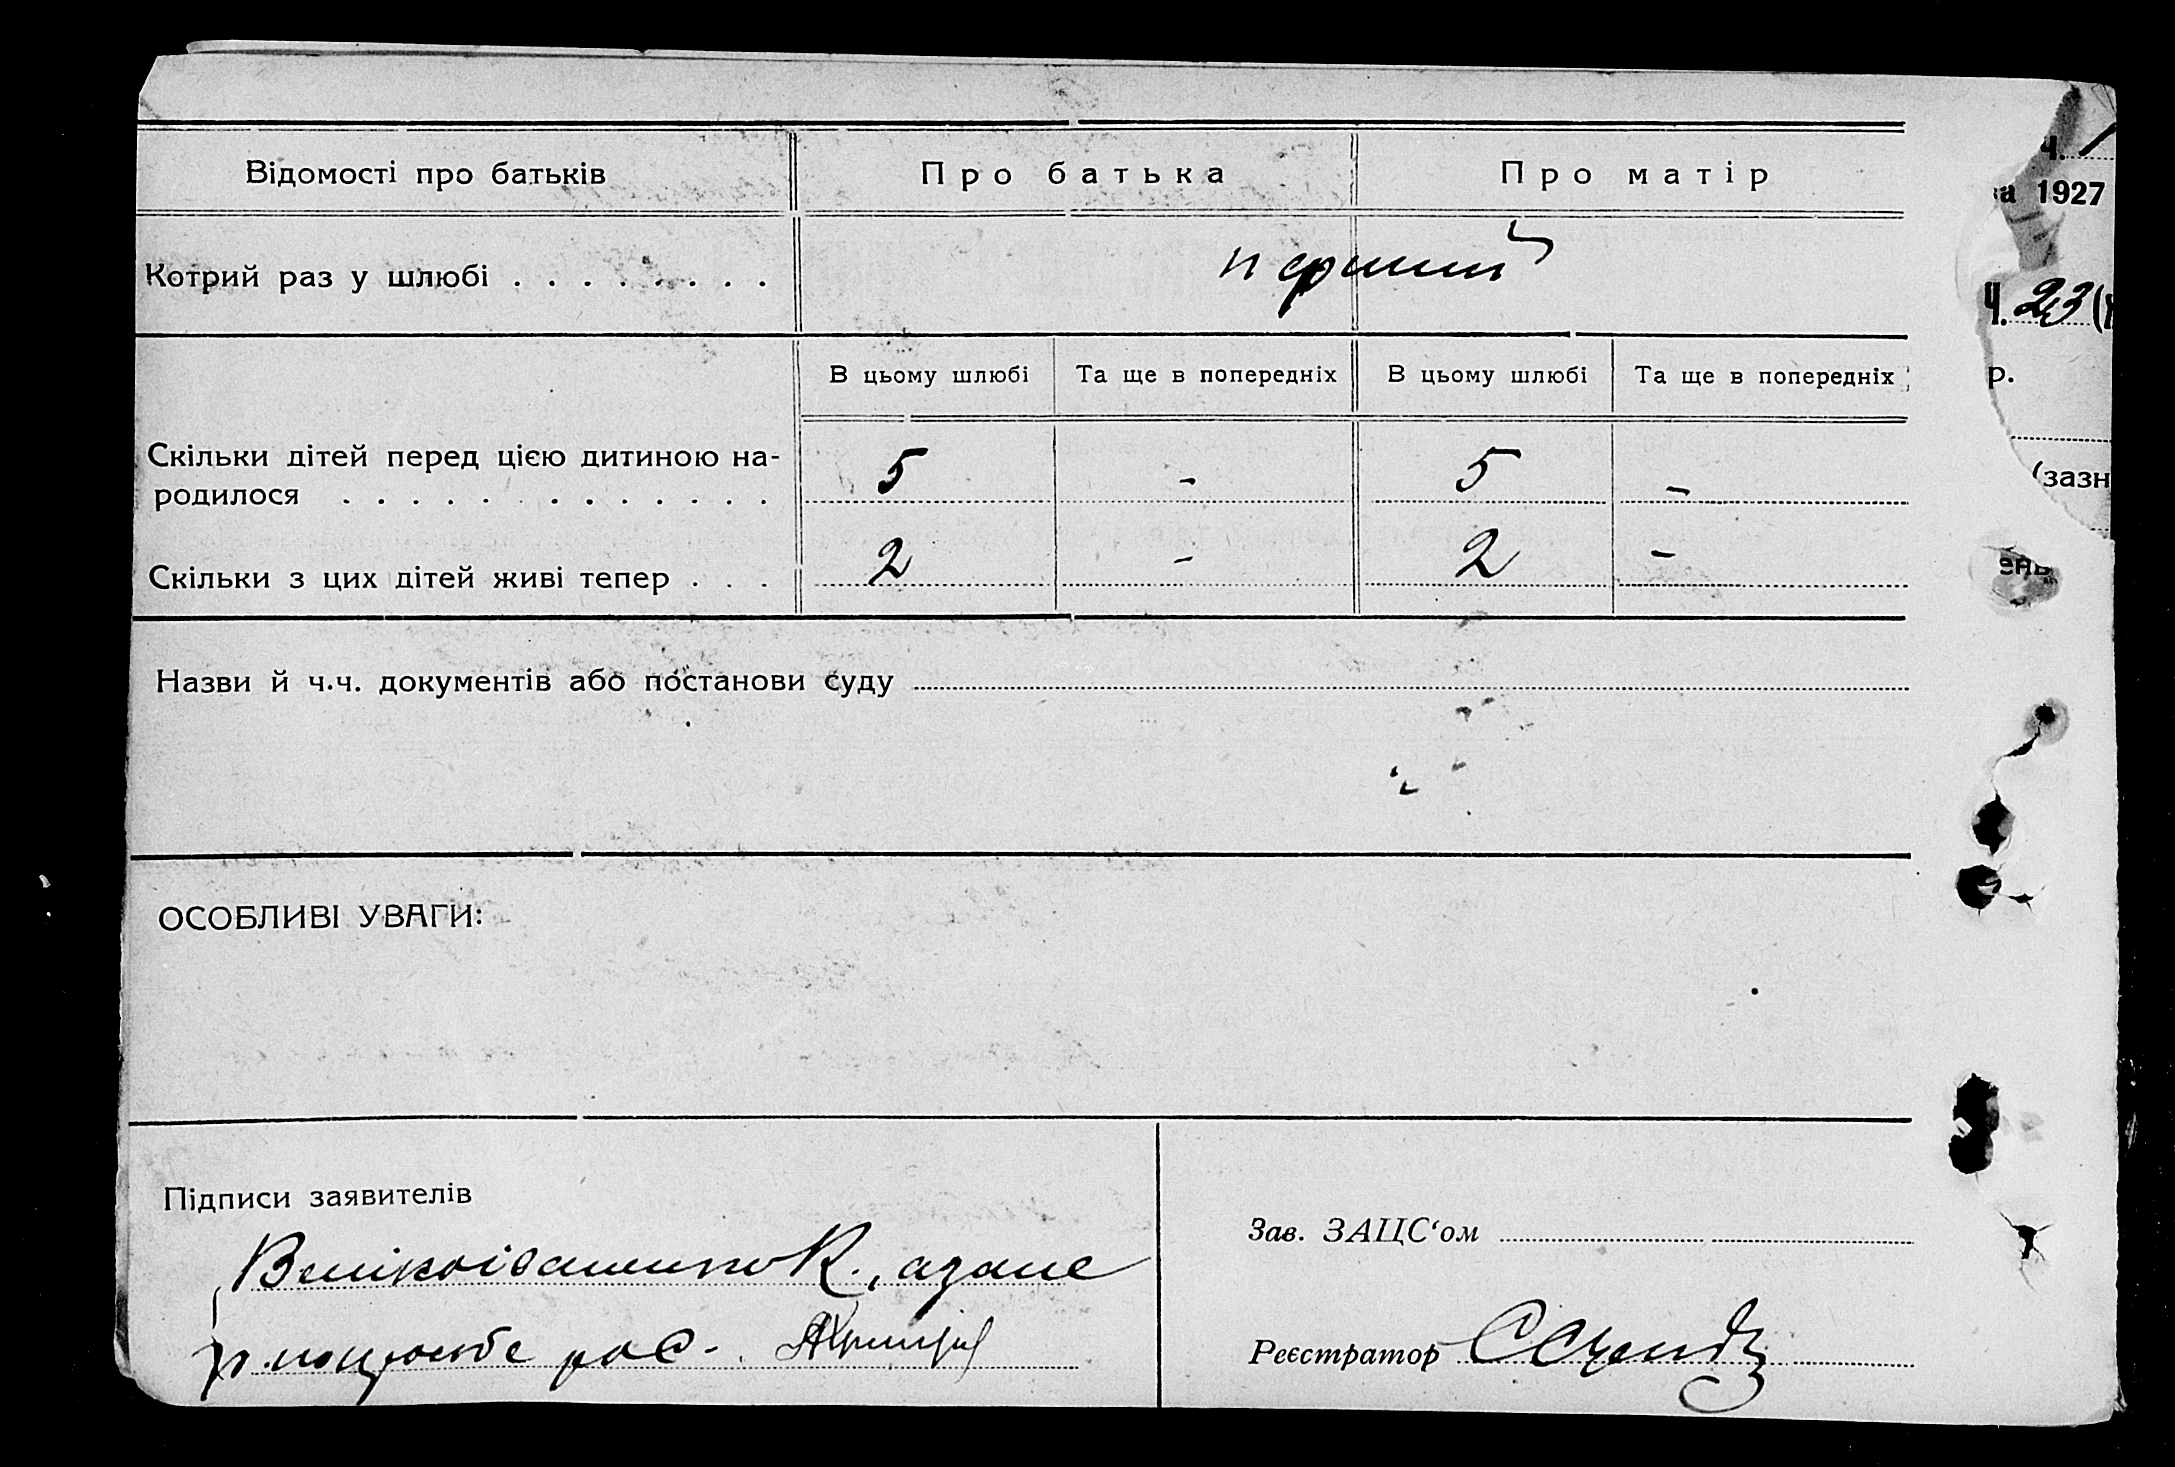 Відомості про батьків Про батька Про матір
Ч.
а 1927
Котрий раз у шлюбі . . . . . . . . перший
Ч. 23 (
В цьому шлюбі Та ще в попередніх В цьому шлюбі Та ще в попередніх
р.
Скільки дітей перед цією дитиною на-
родилося . . . . . . . . . . . . . 5 - 5 -
(зазн
Скільки з цих дітей живі тепер . . . 2 - 2 -
ень
Назви й ч.ч. документів або постанови суду
ОСОБЛИВІ УВАГИ:
Підписи заявителів
Зав. ЗАЦС‘ом
Реєстратор